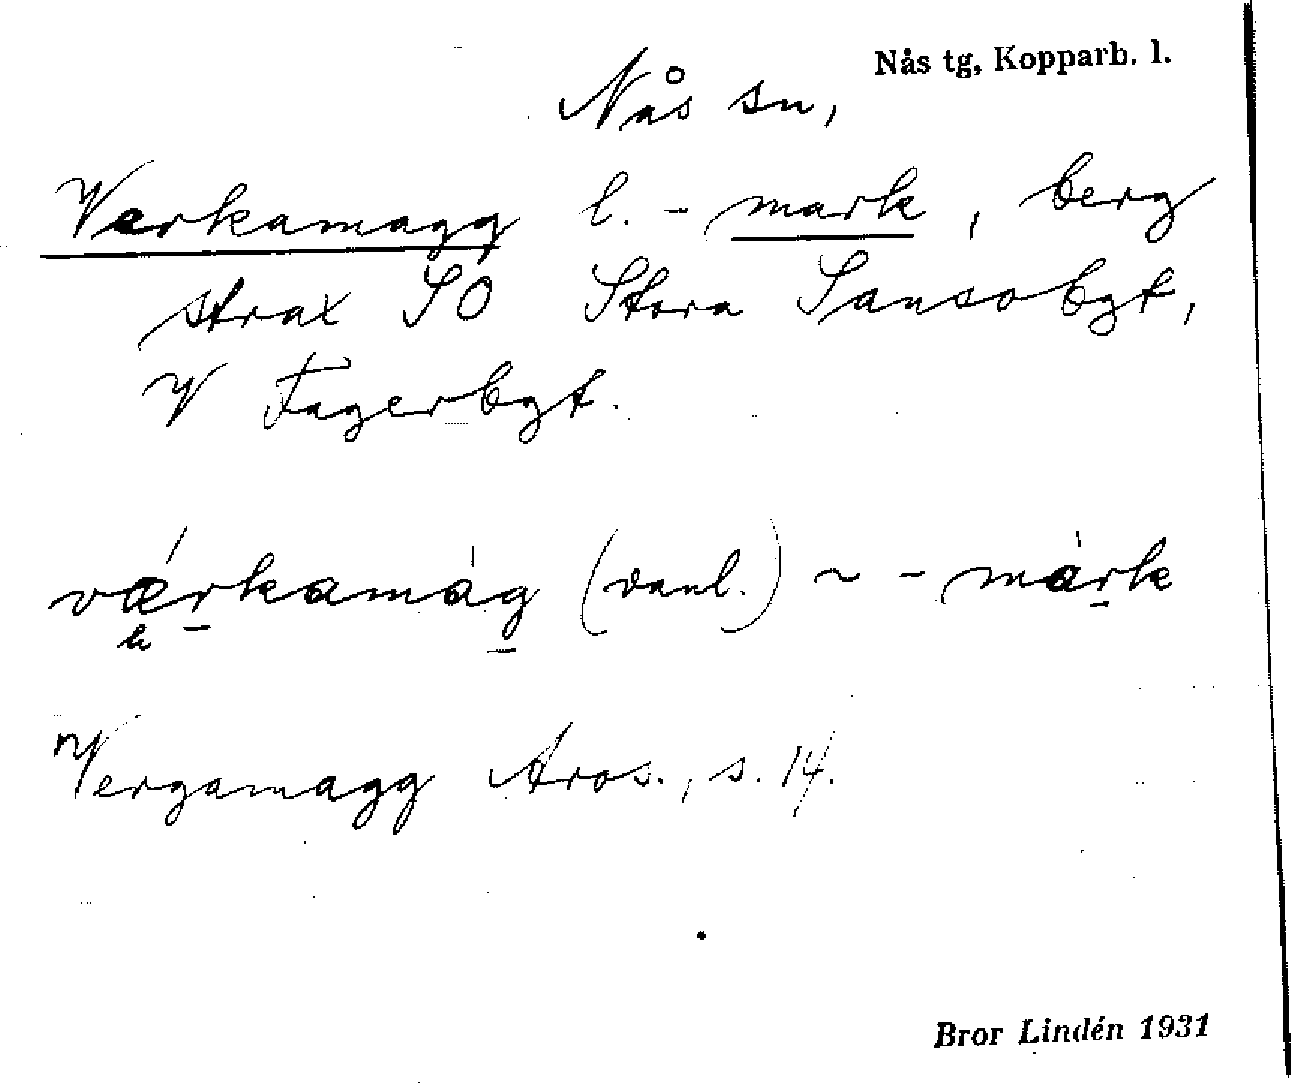 Nås tg, Kopparb. l.
Nås sn,
Verkamagg l. -mark, berg
strax SO Stora Sansobgt,
V Fagerbgt.
værkamàg (vanl.) ~ -màrk
Vergamagg Aros., s. 14.
Bror Lindén 1931